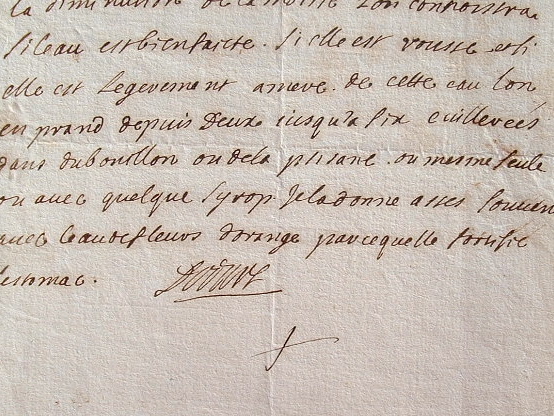 la diminution de la moitié lon connoistra
si leau est bien faicte. si elle est rousse et si
elle est legerement amere. de cette eau lon
en prand depuis Deux jusqu'a six cuillerées
dans du bouillon ou dela ptisane. ou mesme seule
ou avec quelque syrop Je la donne asses souven
avec leau de fleurs d'orange parcequelle fortifie
lestomac.